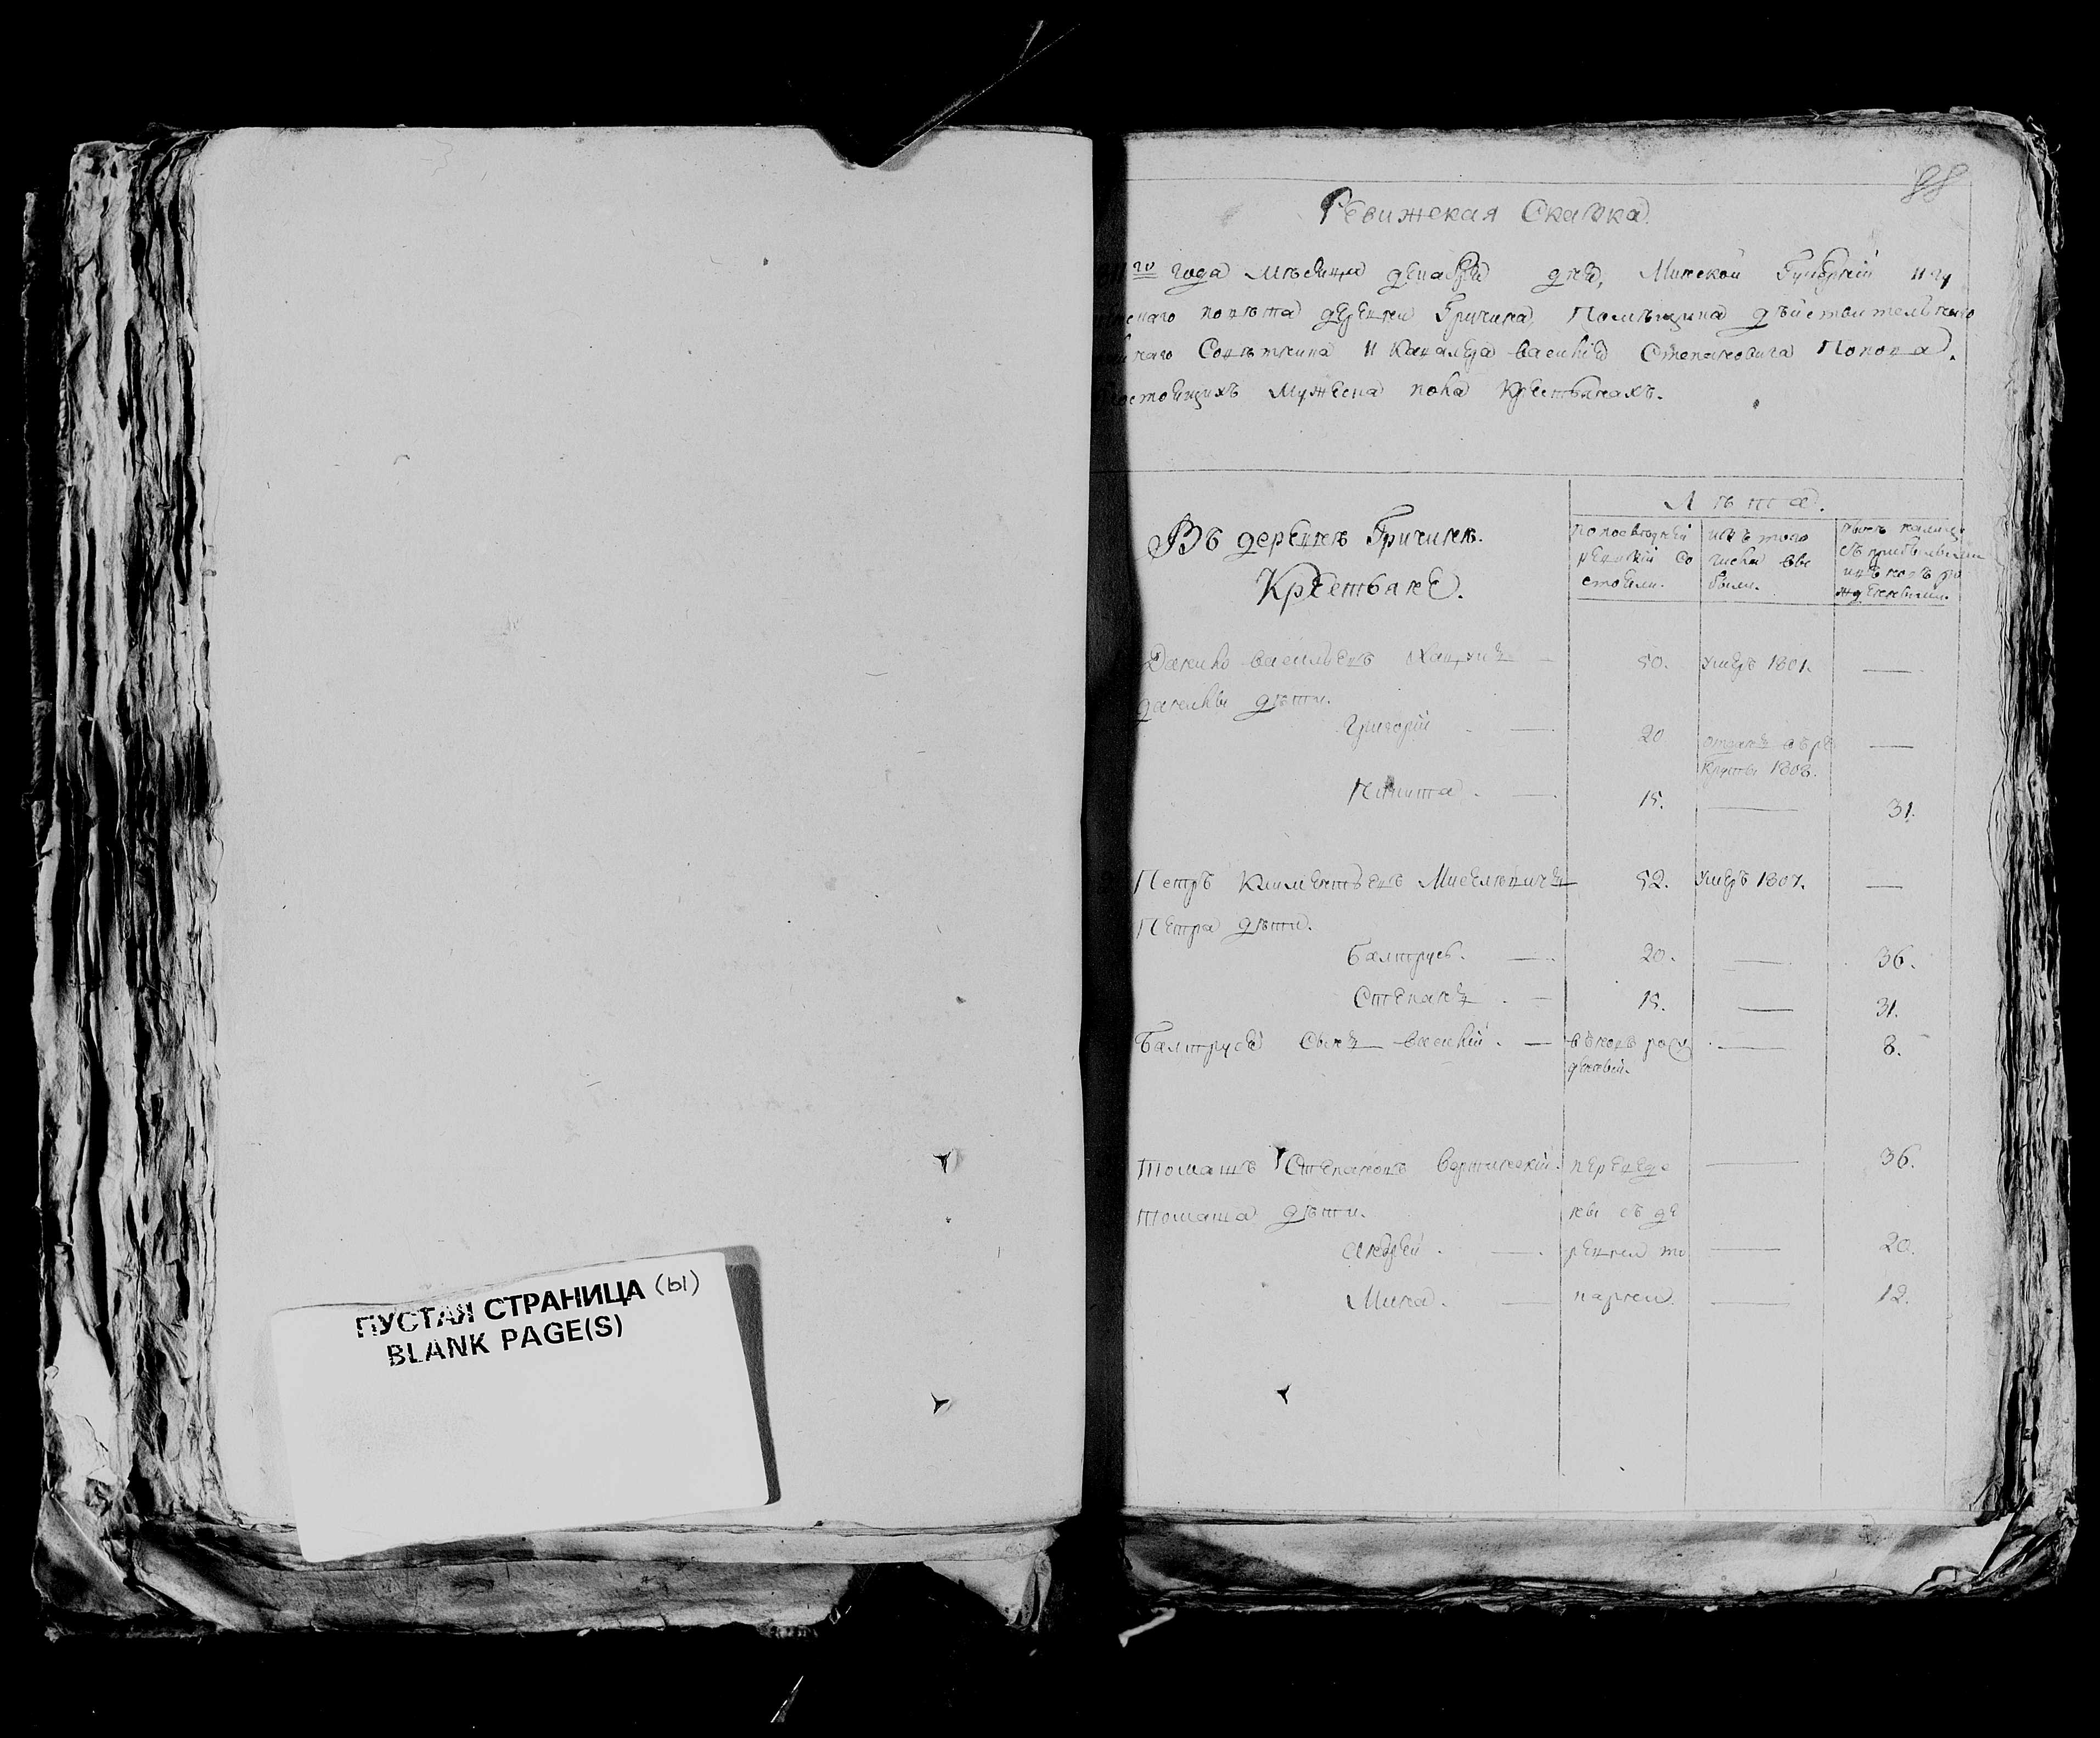 ПУСТАЯ СТРАНИЦА (ы)
BLANK PAGE(S)
88
Ревижская Сказка.
го года Мѣсяца декабря дня, Минской Губерній
повѣта деревни Гричина, Помѣщика дѣйствительнаго
наго Совѣтника и Кавалера Василія Степановича Попова.
состоящихъ Мужеска пола Крестьянахъ.
Въ деревнѣ Гричинѣ.
Крестьяне.
Лѣта.
по последней ревизіи состояли.
изъ того числа выбыли.
нынѣ налицо съ прибылыми и вновь рожденными.
Данило Васильевъ — 50. Умеръ 1801. —
Данилы дѣти.
Григорій — 20 отданъ въ рекруты 1808. —
Никита — 15. — 31.
Петръ Климентьевъ Миселевичъ 52. Умеръ 1807. —
Петра дѣти.
Балтрусь. — 20. — 36.
Степанъ — 15. — 31.
Балтруся Сынъ Василій. — вновь рожденный. — 8.
Томашъ Степановъ переведены съ деревни — 36.
Томаша дѣти.
Андрей. — — 20.
Мина. — — 12.